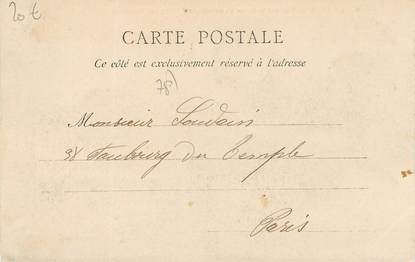 20 €
CARTE POSTALE
Ce côté est exclusivement réservé à l'adresse
78)
Monsieur Soudain
Faubourg du Temple
Paris